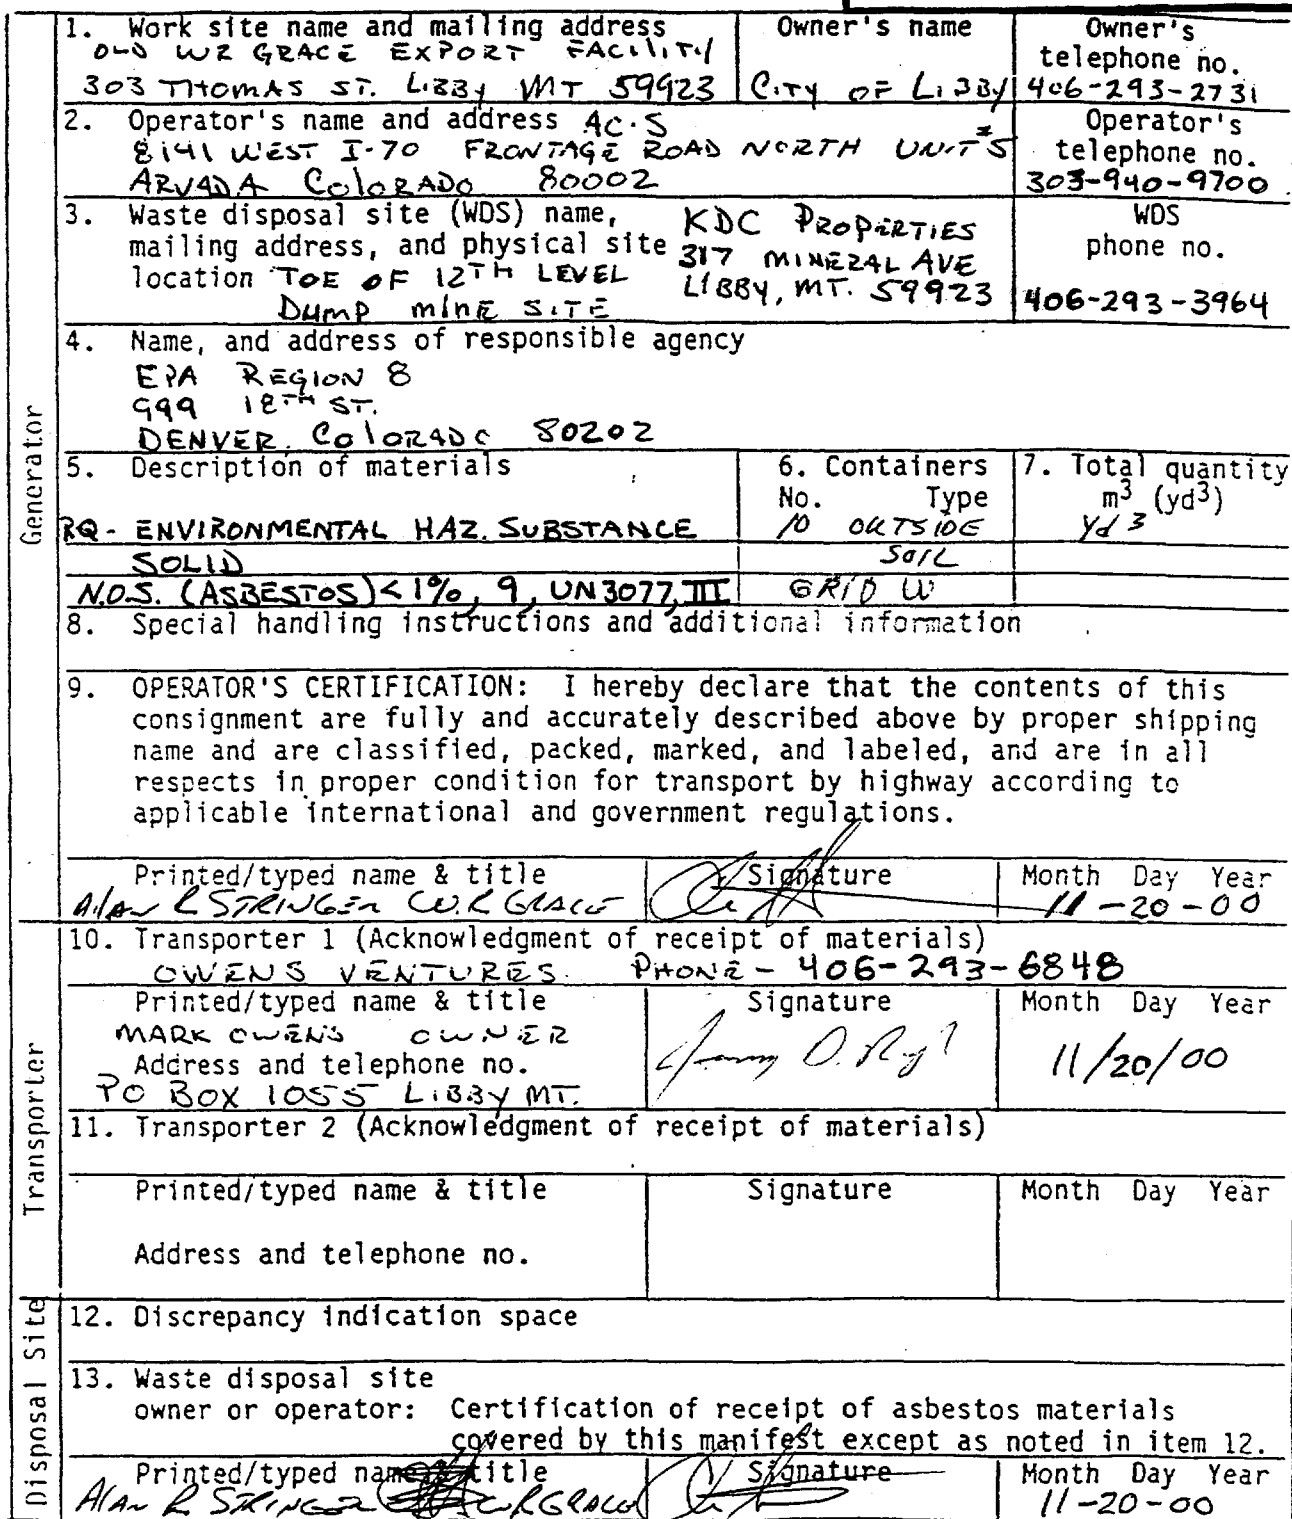 Generator
1. Work site name and mailing address
OLD WR GRACE EXPORT FACILITY
303 THOMAS ST. LIBBY MT 59923
Owner's name
CITY OF LIBBY
Owner's
telephone no.
406-293-2731
2. Operator's name and address AC.S
8141 WEST I-70 FRONTAGE ROAD NORTH UNIT #5
ARVADA COLORADO 80002
Operator's
telephone no.
303-940-9700
3. Waste disposal site (WDS) name,
mailing address, and physical site
location TOE OF 12TH LEVEL
DUMP MINE SITE
KDC PROPERTIES
317 MINERAL AVE
LIBBY, MT. 59923
WDS
phone no.
406-293-3964
4. Name, and address of responsible agency
EPA REGION 8
999 18TH ST.
DENVER, COLORADO 80202
5. Description of materials
RQ- ENVIRONMENTAL HAZ. SUBSTANCE
SOLID
N.O.S. (ASBESTOS) < 1%, 9, UN3077, III
6. Containers
No. Type
10 OUTSIDE
SOIL
GRID W
7. Total quantity
m3 (yd3)
Yd 3
8. Special handling instructions and additional information
9. OPERATOR'S CERTIFICATION: I hereby declare that the contents of this
consignment are fully and accurately described above by proper shipping
name and are classified, packed, marked, and labeled, and are in all
respects in proper condition for transport by highway according to
applicable international and government regulations.
Printed/typed name & title
Alan R STRINGER W.R GRACE
Signature
Month Day Year
11-20-00
Transporter
10. Transporter 1 (Acknowledgment of receipt of materials)
OWENS VENTURES. PHONE - 406-293-6848
Printed/typed name & title
MARK OWENS OWNER
Address and telephone no.
PO BOX 1055 LIBBY MT.
Signature
Month Day Year
11/20/00
11. Transporter 2 (Acknowledgment of receipt of materials)
Printed/typed name & title
Address and telephone no.
Signature
Month Day Year
Disposal Site
12. Discrepancy indication space
13. Waste disposal site
owner or operator: Certification of receipt of asbestos materials
covered by this manifest except as noted in item 12.
Printed/typed name & title
Alan R STRINGER WRGRACE
Signature
Month Day Year
11-20-00